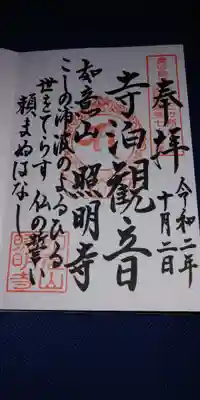 奉拝
令和二年
十月二日
寺泊観音
如意山 照明寺
こしの浦波のよるひる
世をてらす 仏の誓い
頼まぬはなし